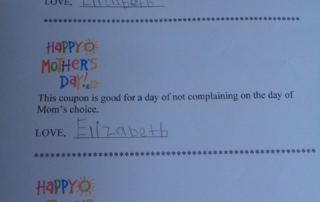 LOVE, Elizabeth
HAPPY
MOTHER'S
DAY!
This coupon is good for a day of not complaining on the day of
Mom's choice.
LOVE, Elizabeth
HAPPY